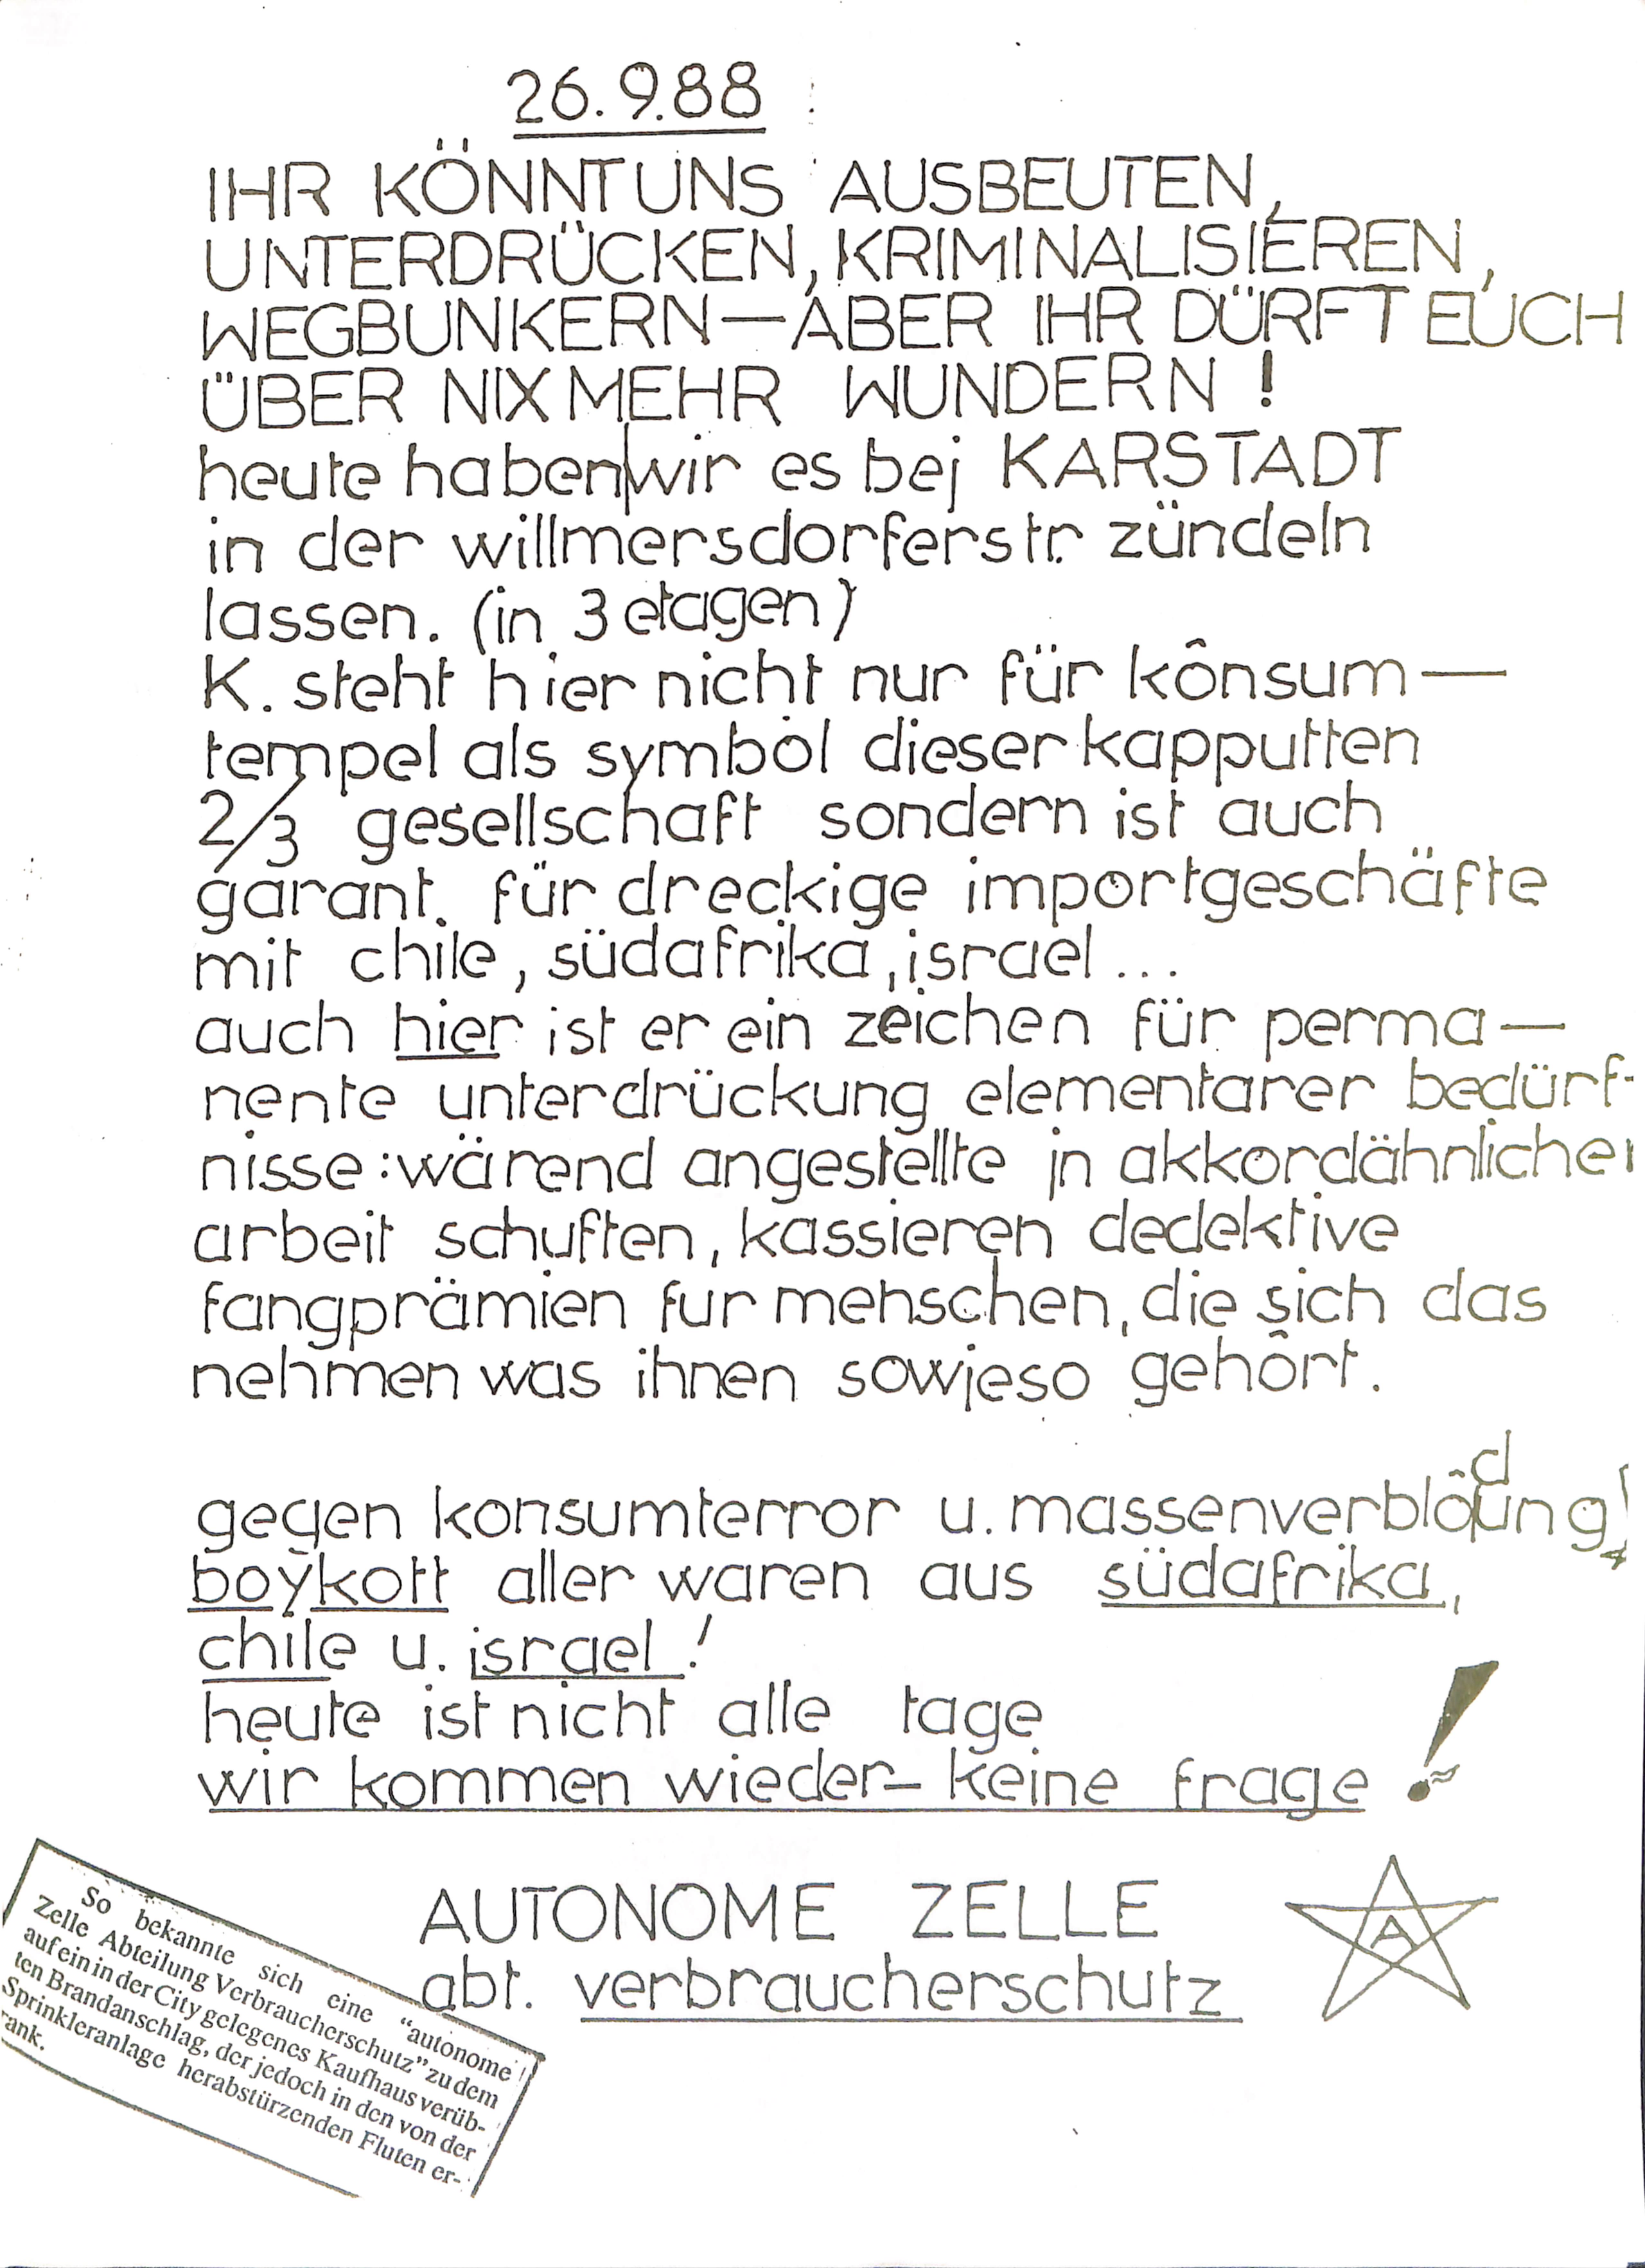 26.9.88
IHR KÖNNT UNS AUSBEUTEN,
UNTERDRÜCKEN, KRIMINALISIEREN,
WEGBUNKERN—ABER IHR DÜRFT EUCH
ÜBER NIX MEHR WUNDERN !
heute haben|wir es bej KARSTADT
in der willmersdorferstr. zündeln
lassen. (in 3 etagen)
K. steht hier nicht nur für kônsum—
tempel als symbol dieser kapputten
2/3 gesellschaft sondern ist auch
garant. für dreckige importgeschäfte
mit chile, südafrika, israel...
auch hier ist er ein zeichen für perma—
nente unterdrückung elementarer bedürf-
nisse: wärend angestellte in akkordähnlicher
arbeit schuften, kassieren dedektive
fangprämien fur menschen, die sich das
nehmen was ihnen sowieso gehôrt.
gegen konsumterror u. massenverblôdung!
boykott aller waren aus südafrika,
chile u. israel !
heute ist nicht alle tage
wir kommen wieder– keine frage !
AUTONOME ZELLE
abt. verbraucherschutz
A
So bekannte sich eine “autonome
Zelle Abteilung Verbraucherschutz” zu dem
auf ein in der City gelegenes Kaufhaus verüb-
ten Brandanschlag, der jedoch in den von der
Sprinkleranlage herabstürzenden Fluten er-
rank.